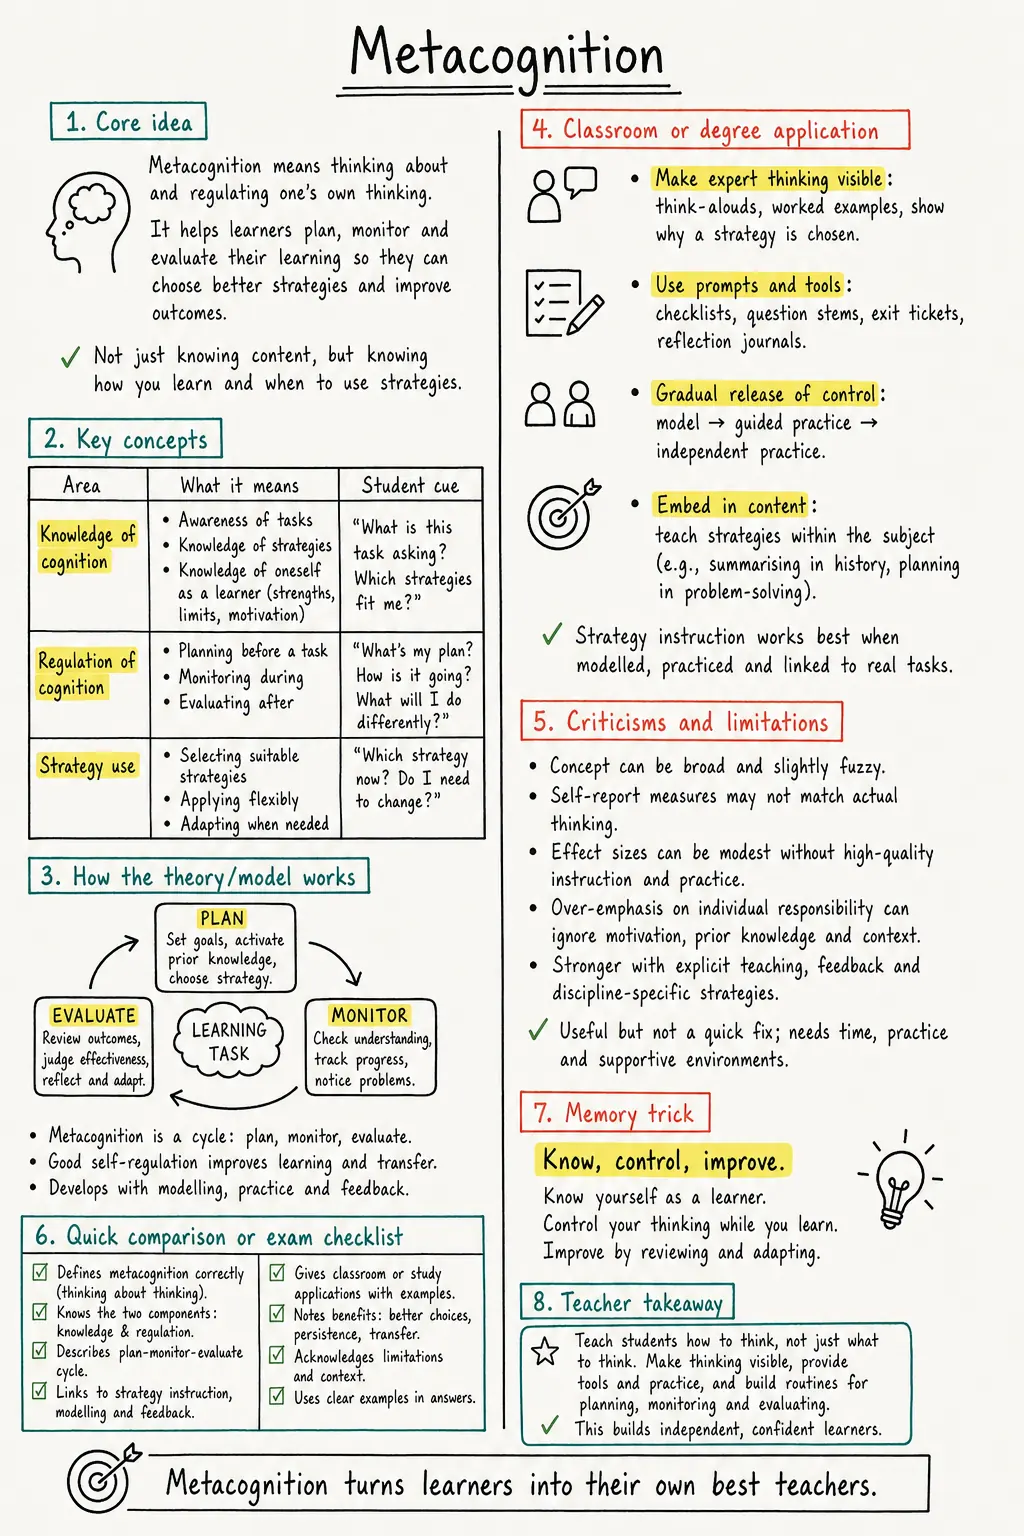 Metacognition
1. Core idea
Metacognition means thinking about
and regulating one's own thinking.
It helps learners plan, monitor and
evaluate their learning so they can
choose better strategies and improve
outcomes.
✓ Not just knowing content, but knowing
how you learn and when to use strategies.
2. Key concepts
Area
What it means
Student cue
Knowledge of
cognition
• Awareness of tasks
• Knowledge of strategies
• Knowledge of oneself
as a learner (strengths,
limits, motivation)
"What is this
task asking?
Which strategies
fit me?"
Regulation of
cognition
• Planning before a task
• Monitoring during
• Evaluating after
"What's my plan?
How is it going?
What will I do
differently?"
Strategy use
• Selecting suitable
strategies
• Applying flexibly
• Adapting when needed
"Which strategy
now? Do I need
to change?"
3. How the theory/model works
PLAN
Set goals, activate
prior knowledge,
choose strategy.
EVALUATE
Review outcomes,
judge effectiveness,
reflect and adapt.
LEARNING
TASK
MONITOR
Check understanding,
track progress,
notice problems.
• Metacognition is a cycle: plan, monitor, evaluate.
• Good self-regulation improves learning and transfer.
• Develops with modelling, practice and feedback.
6. Quick comparison or exam checklist
☑ Defines metacognition correctly
(thinking about thinking).
☑ Knows the two components:
knowledge & regulation.
☑ Describes plan-monitor-evaluate
cycle.
☑ Links to strategy instruction,
modelling and feedback.
☑ Gives classroom or study
applications with examples.
☑ Notes benefits: better choices,
persistence, transfer.
☑ Acknowledges limitations
and context.
☑ Uses clear examples in answers.
4. Classroom or degree application
• Make expert thinking visible:
think-alouds, worked examples, show
why a strategy is chosen.
• Use prompts and tools:
checklists, question stems, exit tickets,
reflection journals.
• Gradual release of control:
model → guided practice →
independent practice.
• Embed in content:
teach strategies within the subject
(e.g., summarising in history, planning
in problem-solving).
✓ Strategy instruction works best when
modelled, practiced and linked to real tasks.
5. Criticisms and limitations
• Concept can be broad and slightly fuzzy.
• Self-report measures may not match actual
thinking.
• Effect sizes can be modest without high-quality
instruction and practice.
• Over-emphasis on individual responsibility can
ignore motivation, prior knowledge and context.
• Stronger with explicit teaching, feedback and
discipline-specific strategies.
✓ Useful but not a quick fix; needs time, practice
and supportive environments.
7. Memory trick
Know, control, improve.
Know yourself as a learner.
Control your thinking while you learn.
Improve by reviewing and adapting.
8. Teacher takeaway
Teach students how to think, not just what
to think. Make thinking visible, provide
tools and practice, and build routines for
planning, monitoring and evaluating.
✓ This builds independent, confident learners.
Metacognition turns learners into their own best teachers.